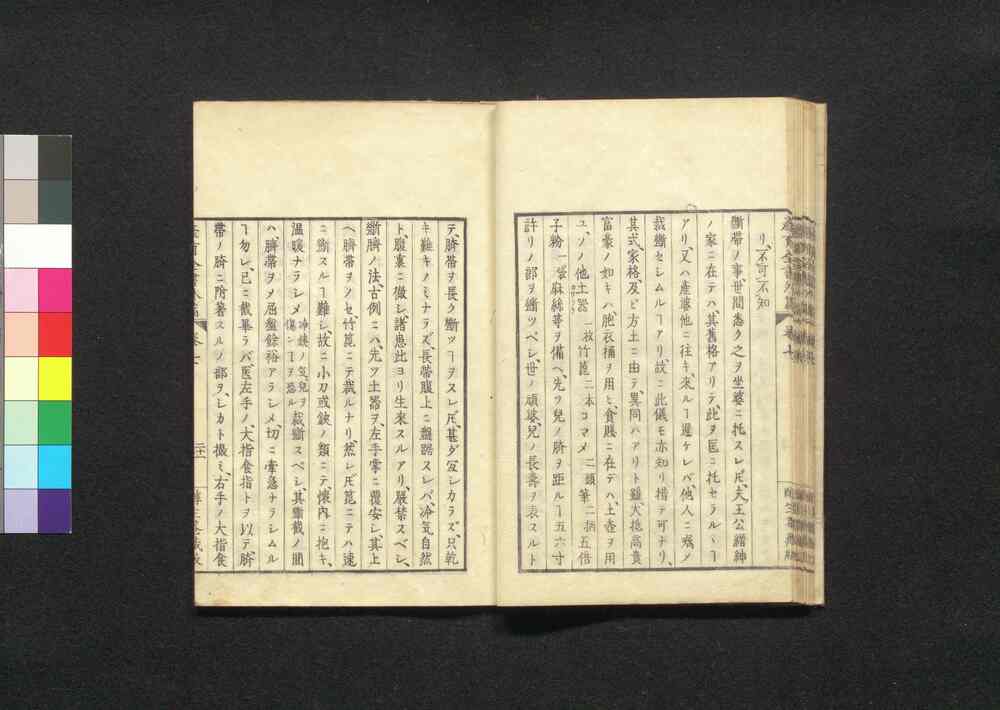 産育全書外篇 巻七
リ、不可不知
斷帯ノ事、世間悉ク之ヲ坐婆ニ托スレ𪜈、夫王公縉紳
ノ家ニ在テハ、其舊格アリテ此ヲ医ニ托セラルヽヿ
アリ、又ハ産婆他ニ往キ、來ルヿ遲ケレバ、他人ニ囑ノ
裁斷セシムルヿアリ、故ニ此儀モ亦知リ措テ可ナリ、
其式、家格及ビ方土ニ由テ異同ハアリト雖、大抵高貴
富豪ノ如キハ、胞衣桶ヲ用ヒ、貧賤ニ在テハ、土壺ヲ用
ユ、ソノ他土器 一枚竹篦 二本コマメ 二頭筆 二柄五倍
子粉 一袋麻絲等ヲ備ヘ、先ツ兒ノ臍ヲ距ルヿ五六寸
許リノ部ヲ斷ツベシ、世ノ頑婆、兒ノ長壽ヲ表スルト
テ、臍帯ヲ長ク斷ツヿヲスレ𪜈、甚ダ宜シカラズ、只乾
キ難キノミナラズ、長帯腹上ニ盤踞スレバ、冷気自然
ト、腹裏ニ徹シ、諸患此ヨリ生來スルアリ、嚴禁スベシ、
斷臍ノ法、古例ニハ、先ツ土器ヲ、左手掌ニ覆安シ、其上
ヘ臍帯ヲノセ、竹篦ニテ裁ルナリ、然レ𪜈篦ニテハ速
ニ斷スルヿ難シ、故ニ小刀或鋏ノ類ニテ、懐内ニ抱キ、
温暖ナラシメ 冷鐵ノ気兒ヲ傷ンヿヲ恐ル 裁斷スベシ、其斷截ノ間
ハ、臍帯ヲメ屈盤餘裕アラシメ、切ニ牽急ナラシムル
ヿ勿レ、已ニ截畢ラバ、医左手ノ、大指食指トヲ以テ、臍
帯ノ臍ニ附著スルノ部ヲ、シカト撮ミ、右手ノ大指食